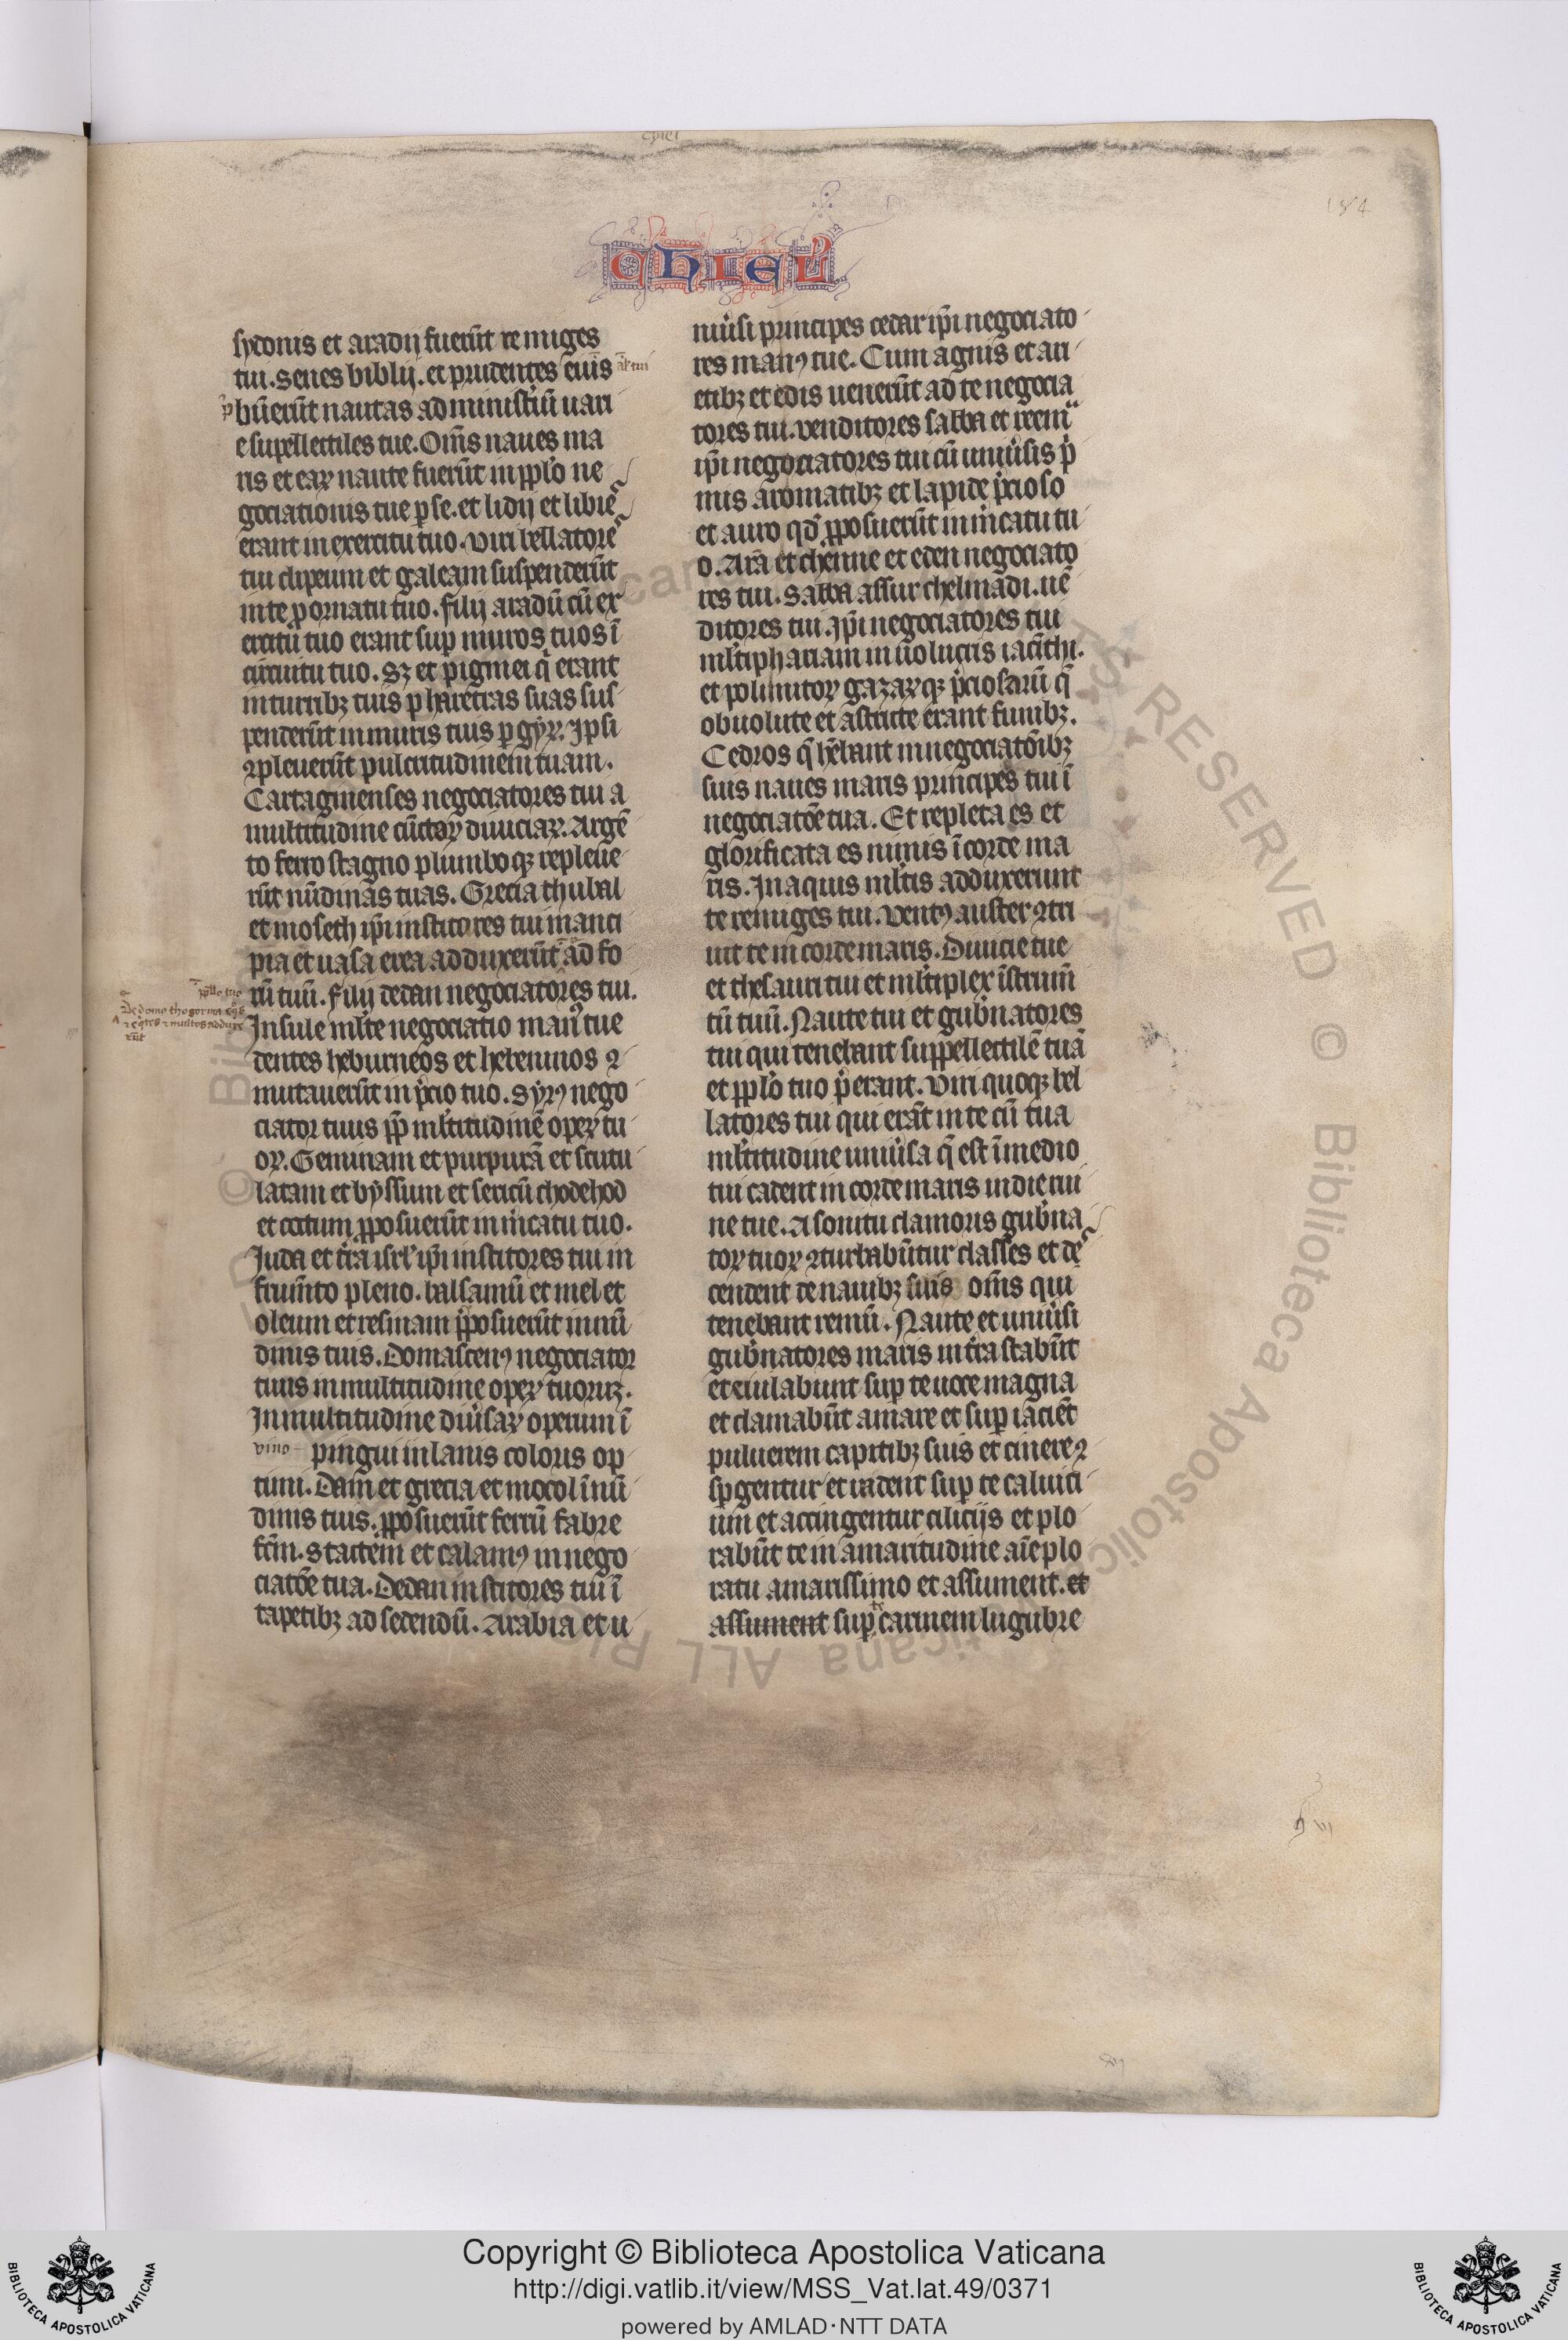 chiel
184
CHIEL
sydonis et aradij fuerūt remiges
tui. Senes biblij. et prudentes eius al' tui
p̄buerūt nautas ad ministeriū uari
e supellectiles tue. Om̄s naues ma
ris et eaꝝ naute fuerūt in pplo ne
gociationis tue perse. et lidij et libies
erant in exercitu tuo. Viri bellatores
tui clipeum et galeam suspenderūt
in te p ornatu tuo. filij aradij cū ex
ercitu tuo erant sup muros tuos ī
circuitu tuo. Sꝫ et pigmei q̄ erant
in turribꝫ tuis pharetras suas sus
penderūt in muris tuis p gyꝝ. Ipsi
ꝯpleuerūt pulcritudinem tuam.
Cartaginenses negociatores tui a
multitudine cūctaꝝ diuiciaꝝ. Argē
to ferro stagno plumboqꝫ repleue
rūt nūdinas tuas. Grecia thubal
et moseth ip̄i institores tui manci
pia et uasa erea adduxerūt ad fo
pp̄lo tuo
rū tuū. filij dedan negociatores tui.
De domo thogorma eq̄s
ꝛ eq̄tes ꝛ mulos adduxe
rūt
Insule ml̄te negociatio manꝰ tue
dentes heburneos et hebeninos ꝯ
mutauerūt in p̄cio tuo. Syrꝰ nego
ciator tuus pp̄ ml̄titudinē operꝝ tu
oꝝ. Gemmam et purpurā et scutu
latam et byssum et sericū chodchod
et cotum pposuerūt in m̄catu tuo.
Juda et tr̄a isrl' ip̄i institores tui in
frum̄to pleno. balsamū et mel et
oleum et resinam pposuerūt in nū
dinis tuis. Domascenꝰ negociator
tuus in multitudine operꝝ tuorūꝫ.
In multitudine diūsaꝝ operum ī
vino pingui in lanis coloris op
timi. Dan et grecia et mocol ī nū
dinis tuis. pposuerūt ferrū fabre
fc̄m. Stactem et calamꝰ in nego
ciatōe tua. Dedan institores tui ī
tapetibꝫ ad sedendū. Arabia et u
niūsi principes cedar ip̄i negociato
res manꝰ tue. Cum agnis et ari
etibꝫ et edis uenerūt ad te negocia
tores tui. venditores sabba et reema
ip̄i negociatores tui cū uniūsis p̄
mis aromatibꝫ et lapide p̄cioso
et auro qd̄ pposuerūt in m̄catu tu
o. Arā et chenne et eden negociato
res tui. Sabba assur chelmadi. uē
ditores tui. Ip̄i negociatores tui
ml̄tiphariam inuolucris iacīthi.
et polimitoꝝ gazaꝝqꝫ p̄ciosarū q̄
obuolute et astricte erant funibꝫ.
Cedros q̄ hēbant in negociatōibꝫ
suis naues maris principes tui ī
negociatōe tua. Et repleta es et
glorificata es nimis ī corde ma
ris. In aquis ml̄tis adduxerunt
te remiges tui. Ventꝰ auster ꝯtri
uit te in corde maris. Diuicie tue
et thesauri tui et ml̄tiplex īstrum̄
tū tuū. Naute tui et gub̄natores
tui qui tenebant suppellectilē tuā
et pplo tuo p̄erant. Viri quoqꝫ bel
latores tui qui erāt in te cū tua
ml̄titudine uniūsa q̄ est ī medio
tui cadent in corde maris in die rui
ne tue. A sonitu clamoris gub̄na
toꝝ tuoꝝ ꝯturbabūtur classes et des
cendent de nauibꝫ suis om̄s qui
tenebant remū. Naute et uniūsi
gub̄natores maris in tr̄a stabūt
et eiulabunt sup te uoce magna
et clamabūt amare et sup iaciēt
puluerem capitibꝫ suis et cinere ꝯ
sp̱gentur et radent sup te caluici
um et accingentur cilicijs et plo
rabūt te in amaritudine aīe plo
ratu amarissimo et assument. et
assument sup te carmem lugubre
Copyright © Biblioteca Apostolica Vaticana
http://digi.vatlib.it/view/MSS_Vat.lat.49/0371
powered by AMLAD·NTT DATA